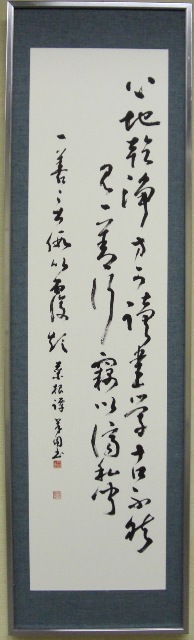 心地乾浄方可讀書学古不然
見一善行竊以済私聞
一善言假以覆短 菜根譚 書